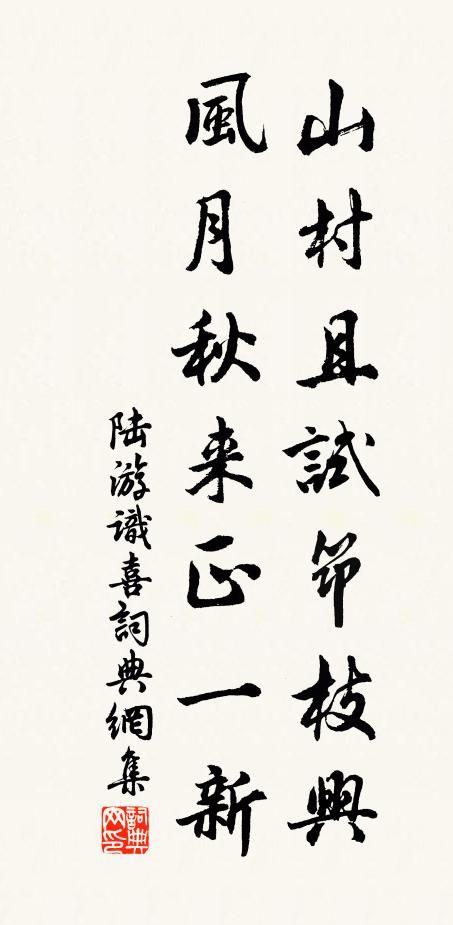 山村且試筇枝興
風月秋来正一新
陆游識喜詞典網集
詞典网印